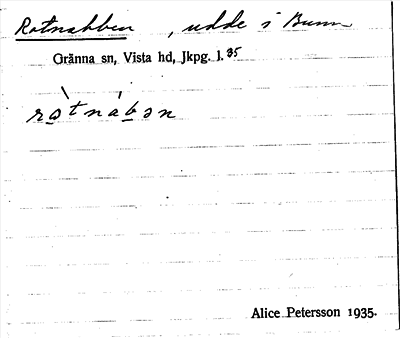 Rotnabben, udde i Bunn
Gränna sn, Vista hd, Jkpg. l. 35
rɷ̀tnábən
Alice Petersson 1935.